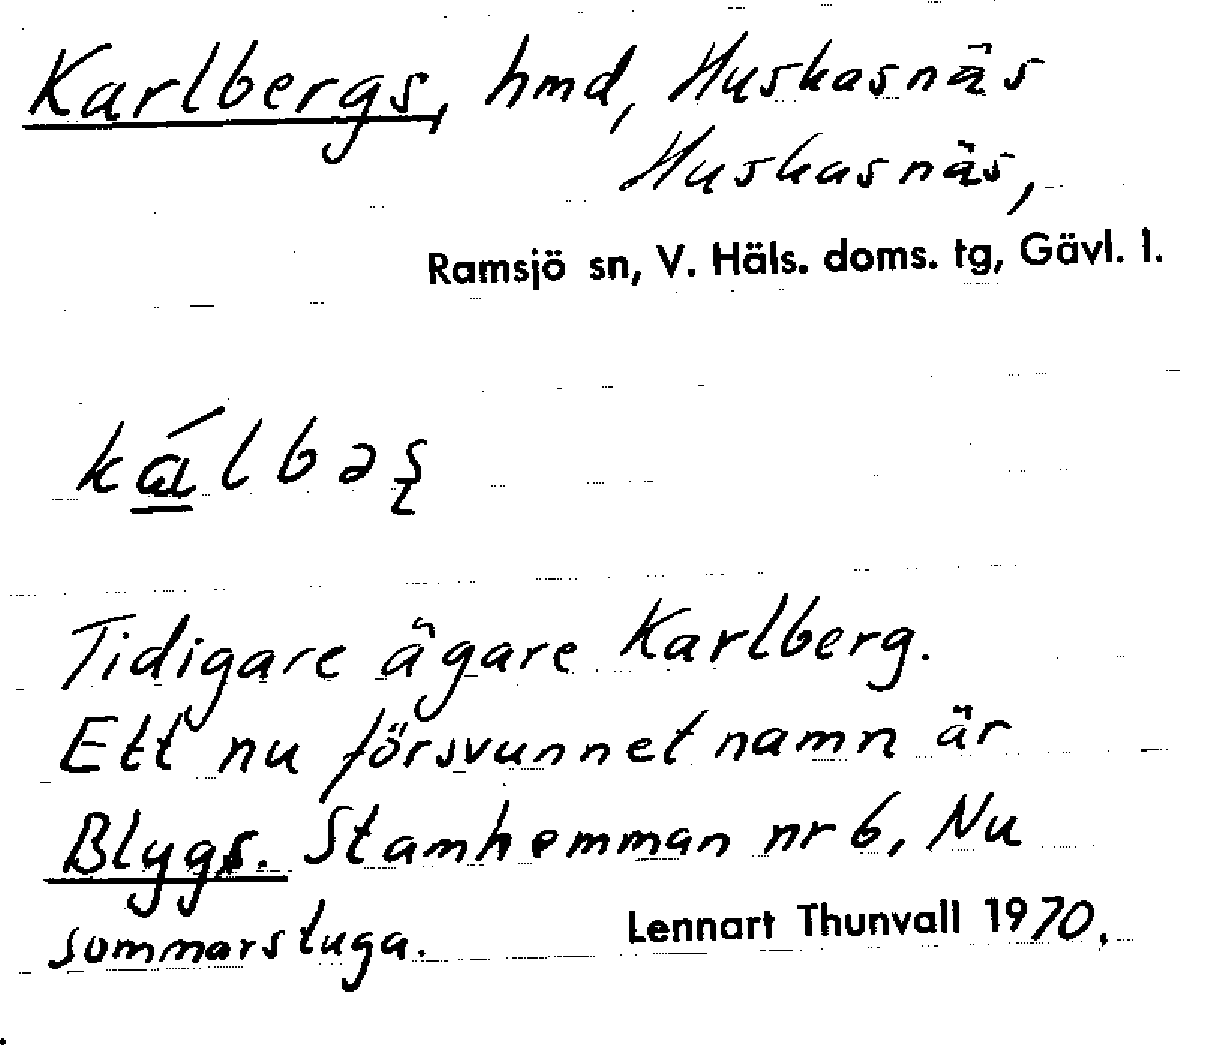 Karlbergs, hmd, Huskasnäs
Huskasnäs,
Ramsjö sn, V. Häls. doms. tg, Gävl. l.
Tidigare ägare Karlberg.
Ett nu försvunnet namn är
Blygs. Stamhemman nr 6, Nu
sommarstuga. Lennart Thunvall 1970.